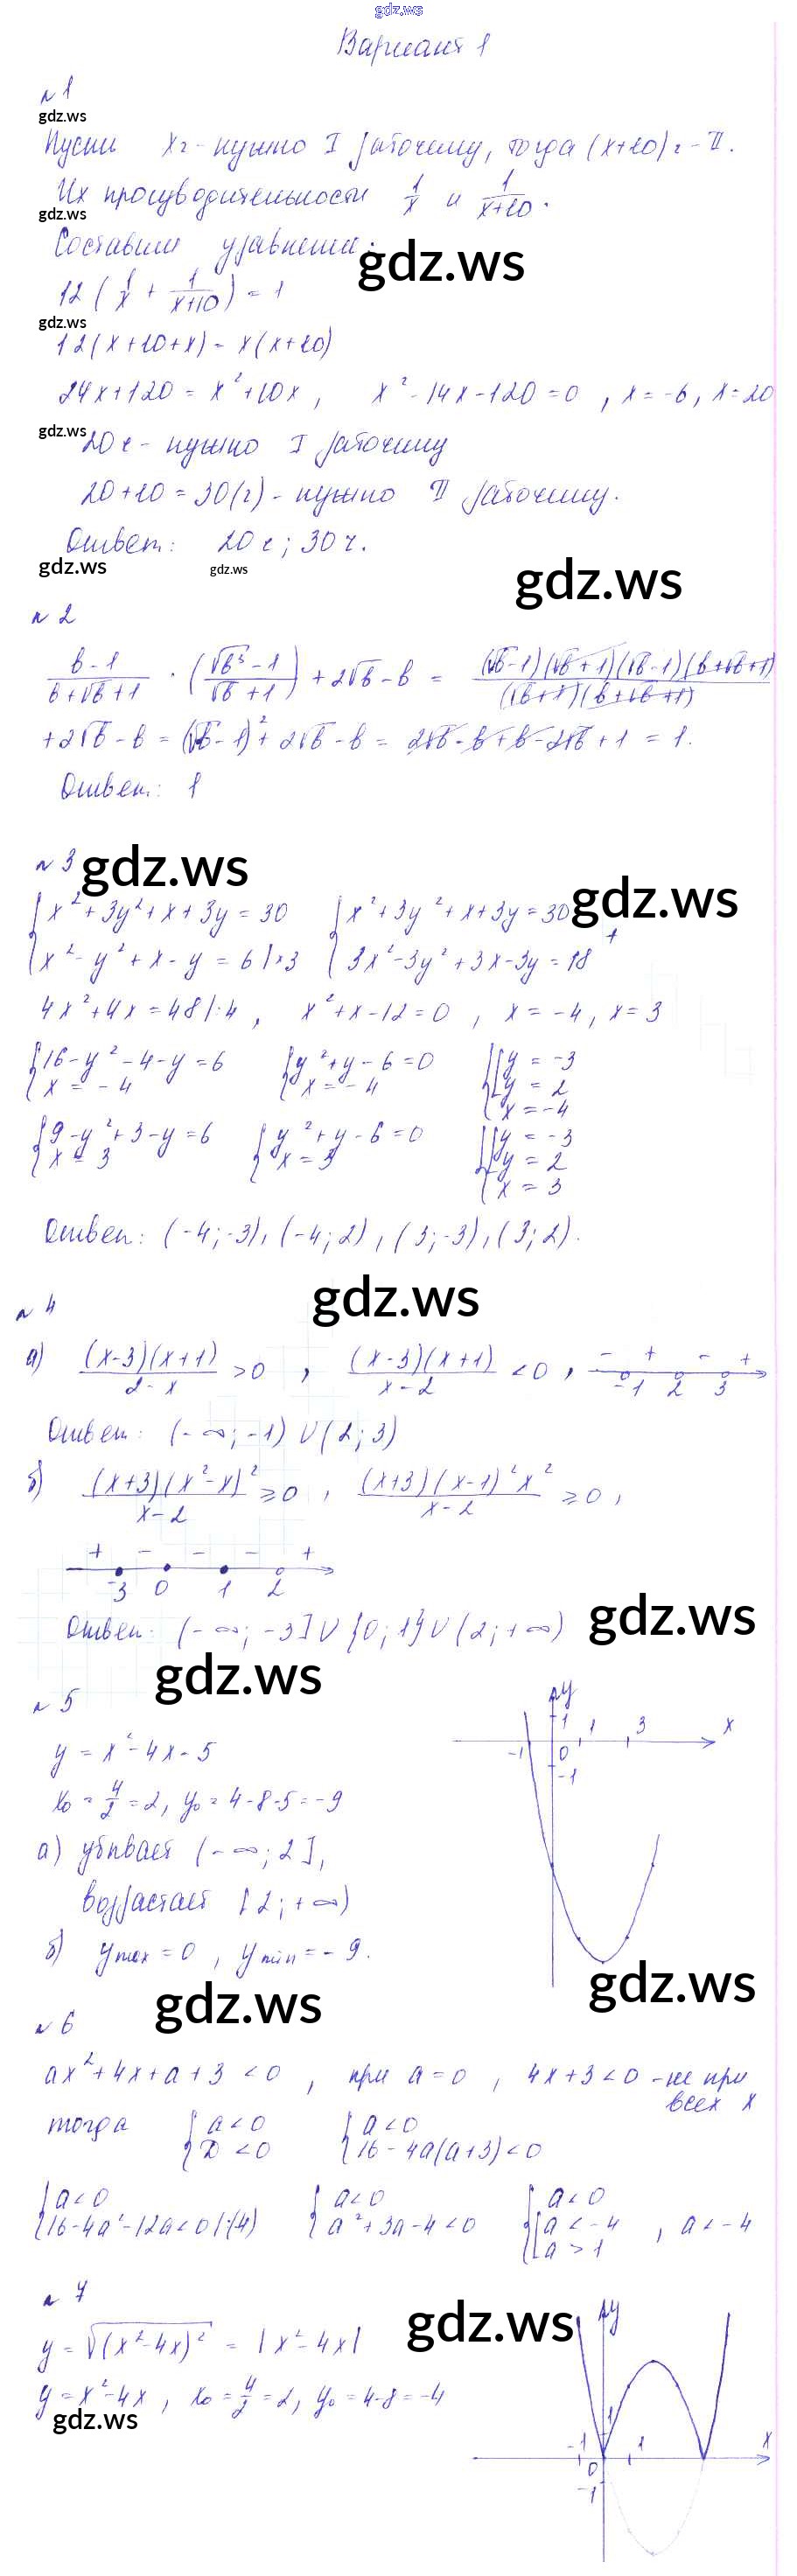 gdz.ws
Вариант 1
№ 1
gdz.ws
Пусть x ч - нужно I рабочему, тогда (x+10) ч - II.
Их производительности 1/x и 1/(x+10).
gdz.ws
Составим уравнение:
gdz.ws
12(1/x + 1/(x+10)) = 1
gdz.ws
12(x+10+x) = x(x+10)
24x+120 = x²+10x, x²-14x-120=0, x=-6, x=20
gdz.ws
20 ч - нужно I рабочему
20+10=30(ч) - нужно II рабочему.
Ответ: 20 ч; 30 ч.
gdz.ws gdz.ws gdz.ws
№ 2
(b-1)/(b+√b+1) · ((√b³-1)/(√b+1)) + 2√b-b = ((√b-1)(√b+1)(√b-1)(b+√b+1))/((√b+1)(b+√b+1))
+2√b-b = (√b-1)²+2√b-b = 2√b-b+b-2√b+1 = 1.
Ответ: 1
№ 3 gdz.ws
gdz.ws
{x²+3y²+x+3y=30 {x²+3y²+x+3y=30 +
{x²-y²+x-y=6 |·3 {3x²-3y²+3x-3y=18
4x²+4x=48 |:4, x²+x-12=0, x=-4, x=3
{16-y²-4-y=6 {y²+y-6=0 {[y=-3
{x=-4 {x=-4 {[y=2
{x=-4
{9-y²+3-y=6 {y²+y-6=0 {[y=-3
{x=3 {x=3 {[y=2
{x=3
Ответ: (-4;-3), (-4;2), (3;-3), (3;2).
gdz.ws
№ 4
а) ((x-3)(x+1))/(2-x) >0, ((x-3)(x+1))/(x-2) <0, - + - +
-1 2 3
Ответ: (-∞;-1) U (2;3)
б) ((x+3)(x²-x)²)/(x-2) ≥0, ((x+3)(x-1)²x²)/(x-2) ≥0,
+ - - - +
-3 0 1 2
Ответ: (-∞;-3] U {0;1} U (2;+∞)
gdz.ws
gdz.ws
№ 5
y = x²-4x-5
x₀ = 4/2 = 2, y₀ = 4-8-5 = -9
а) убывает (-∞;2],
возрастает [2;+∞)
б) y max = 0, y min = -9.
y
1
1 3 x
-1 0
-1
gdz.ws
gdz.ws
№ 6
ax²+4x+a+3<0, при a=0, 4x+3<0 - не при
всех x
тогда {a<0 {a<0
{D<0 {16-4a(a+3)<0
{a<0 {a<0 {a<0
{16-4a²-12a<0 |:(4) {a²+3a-4<0 {[a<-4 , a<-4
{[a>1
№ 7
gdz.ws
y = √((x²-4x)²) = |x²-4x|
y = x²-4x, x₀ = 4/2 = 2, y₀ = 4-8 = -4
gdz.ws
y
1
-1 1 x
0
-1